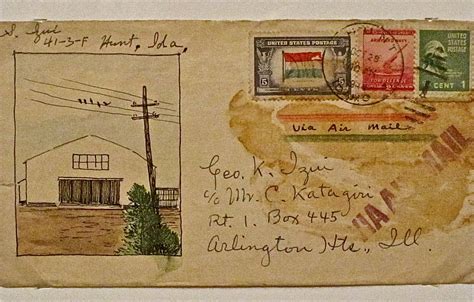 S. Izui
41-3-F Hunt, Ida.
UNITED STATES POSTAGE
5 5
CENTS
FOR DEFENSE
CENT 1
Via Air Mail
VIA AIR MAIL
Geo. K. Izui
c/o Mr. C. Katagiri
Rt. 1. Box 445
Arlington Hts., Ill.